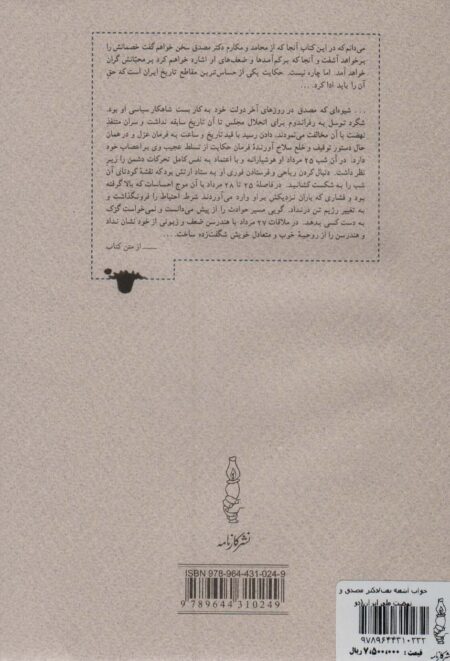 می‌دانم که در این کتاب آنجا که از محامد و مکارم دکتر مصدق سخن خواهم گفت خصمانش را
برخواهد آشفت و آنجا که برکم‌آمدها و ضعف‌های او اشاره خواهم کرد بر محبّانش گران
خواهد آمد. اما چاره نیست. حکایت یکی از حساس‌ترین مقاطع تاریخ ایران است که حق
آن را باید ادا کرد. ...
... شیوه‌ای که مصدق در روزهای آخر دولت خود به کار بست شاهکار سیاسی او بود.
شگرد توسل به رفراندوم برای انحلال مجلس تا آن تاریخ سابقه نداشت و سران متنفذ
نهضت با آن مخالفت می‌نمودند. دادن رسید با قید تاریخ و ساعت به فرمان عزل و در همان
حال دستور توقیف و خلع سلاح آورندهٔ فرمان حکایت از تسلط عجیب وی بر اعصاب خود
دارد. در آن شب ۲۵ مرداد او هوشیارانه و با اعتماد به نفس کامل تحرکات دشمن را زیر
نظر داشت. دنبال کردن ریاحی و فرستادن فوری او به ستاد ارتش بود که نقشهٔ کودتای آن
شب را به شکست کشانید. در فاصلهٔ ۲۵ تا ۲۸ مرداد با آن موج احساسات که بالا گرفته
بود و فشاری که یاران نزدیکش بر او وارد می‌آوردند شرط احتیاط را فرونگذاشت و
به تغییر رژیم تن درنداد. گویی مسیر حوادث را از پیش می‌دانست و نمی‌خواست گزک
به دست کسی بدهد. در ملاقات ۲۷ مرداد با هندرسن ضعف و زبونی از خود نشان نداد
و هندرسن را از روحیهٔ خوب و متعادل خویش شگفت‌زده ساخت.
از متن کتاب
نشر کارنامه
ISBN 978-964-431-024-9
9 789644 310249
خواب آشفته نفت/دکتر مصدق و
نهضت ملی ایران/دو
۹۷۸۹۶۴۴۳۱۰۲۳۲
قیمت: ۷،۵۰۰،۰۰۰ ریال
نشر کارنامه